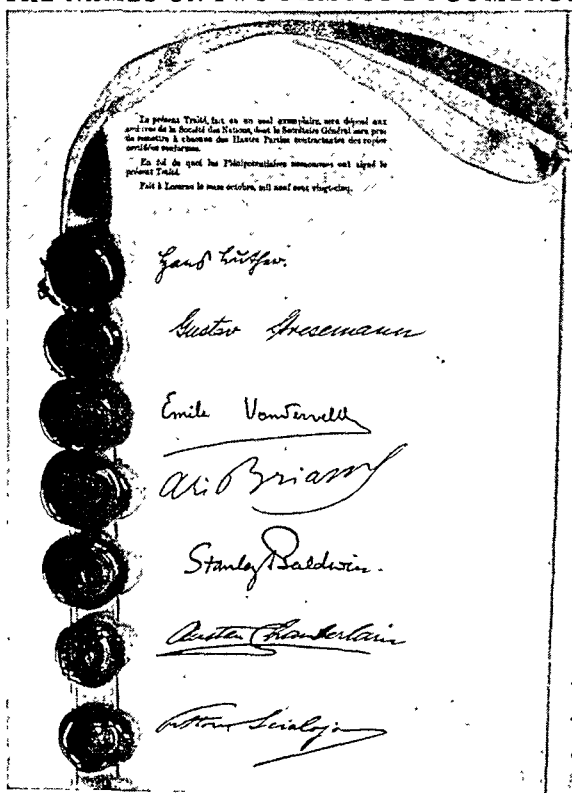 THE NAMES ON TWO FAMOUS DOCUMENTS
Le présent Traité, fait en un seul exemplaire, sera déposé aux
archives de la Société des Nations, dont le Secrétaire Général sera prié
de remettre à chacune des Hautes Parties contractantes des copies
certifiées conformes.
En foi de quoi les Plénipotentiaires susnommés ont signé le
présent Traité.
Fait à Locarno le seize octobre, mil neuf cent vingt-cinq.
Hans Luther.
Gustav Stresemann
Emile Vandervelde
Ari Briand
Stanley Baldwin.
Austen Chamberlain
Vittorio Scialoja